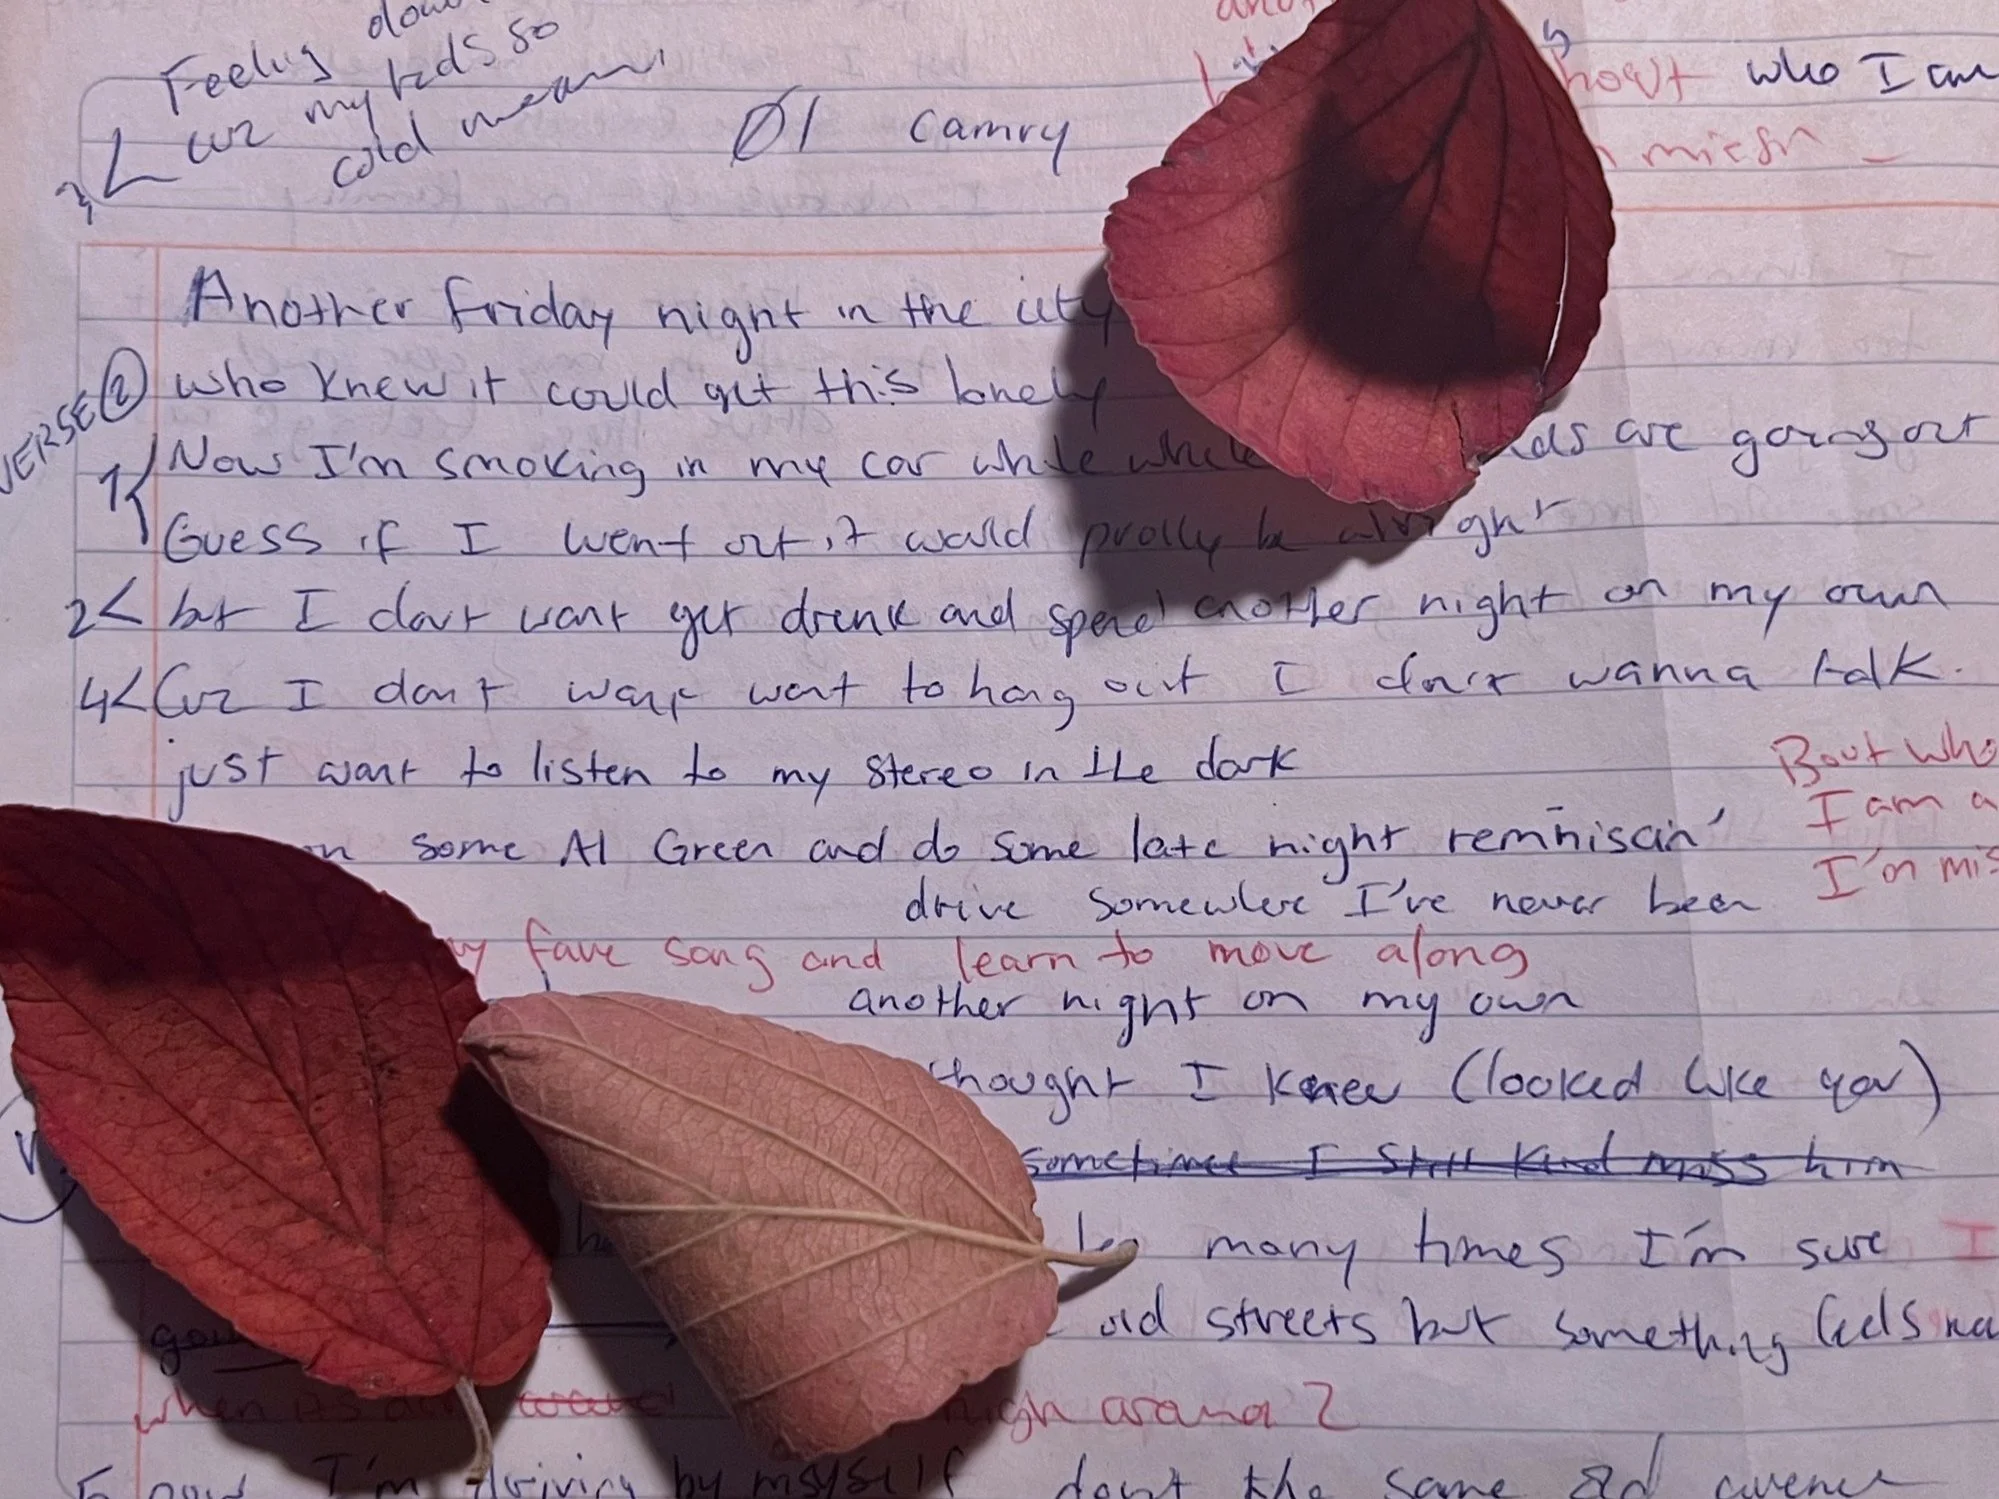 down
Feeling
cuz my kds so
cold mean
Ø1 camry
hout who I am
3
Another friday night in the city
VERSE 2 who knew it could get this lonely
1 Now I'm smoking in my car while while ds are going out
Guess if I went out it would prolly be alright
2< but I dont want get drunk and spend another night on my own
4< Cuz I don't want want to hang out I don't wanna talk.
just want to listen to my stereo in the dark
Bout who
on some Al Green and do some late night reminiscin'
I am a
drive somewhere I've never been
I'm mis
my fave song and learn to move along
another night on my own
thought I knew (looked like you)
sometimes I still kind miss him
many times I'm sure I
old streets but something feels
when high around 2
So now I'm driving by myself down the same old avenue